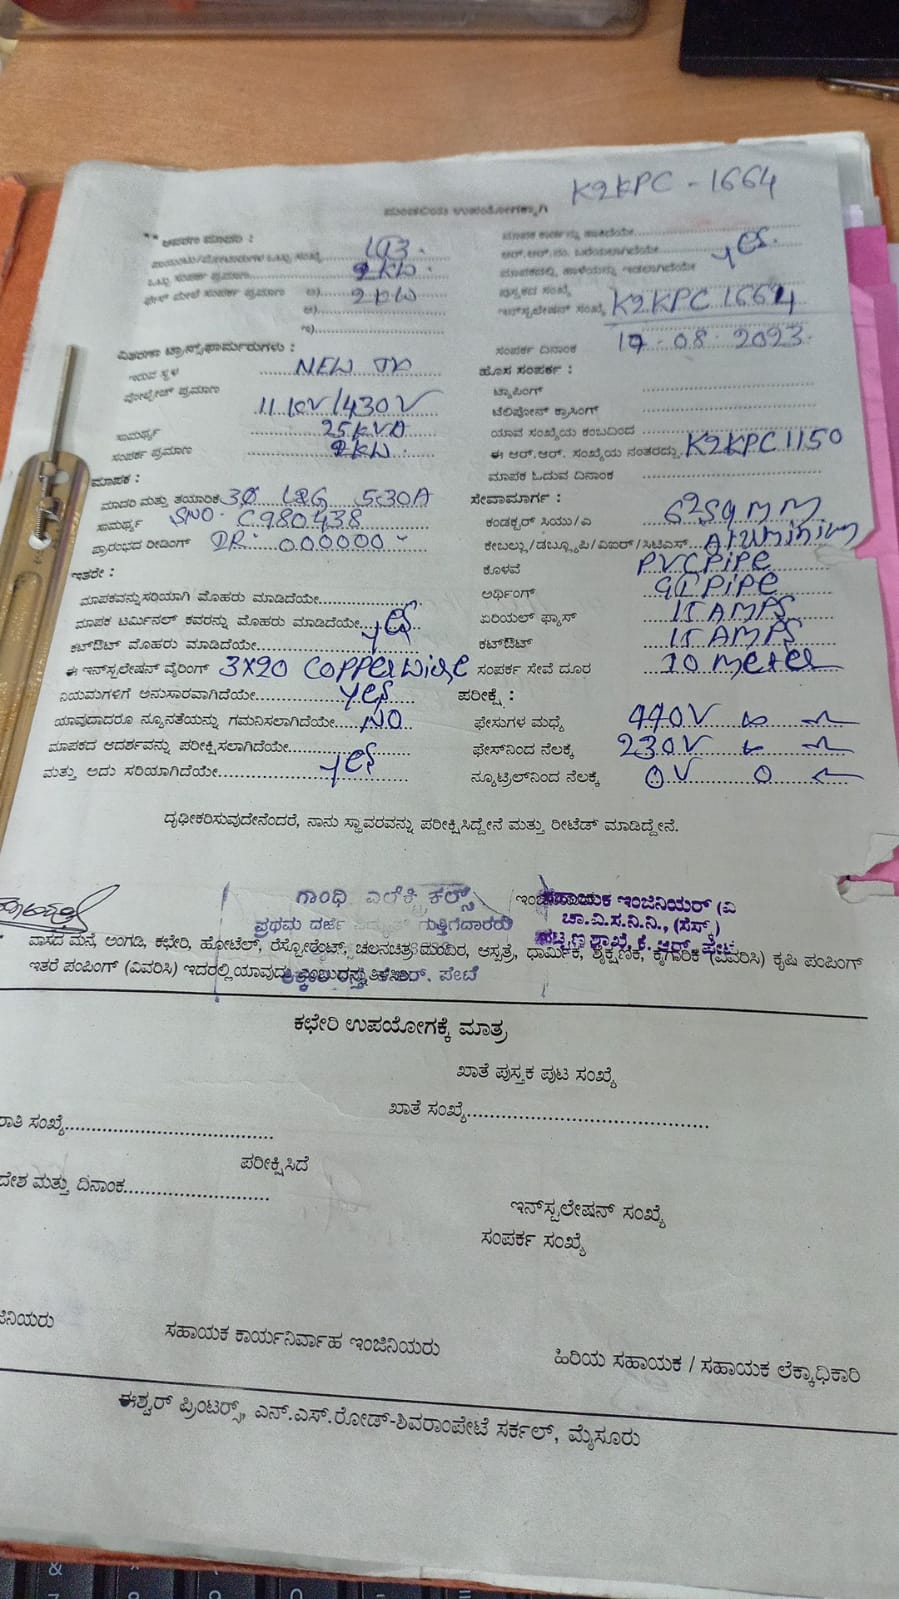 K2KPC - 1664
ಮಂಡಳಿಯ ಉಪಯೋಗಕ್ಕಾಗಿ
2 KW.
2 KW
yes.
ಪುಸ್ತಕದ ಸಂಖ್ಯೆ
ಇನ್‌ಸ್ಟಲೇಷನ್ ಸಂಖ್ಯೆ K2KPC 1664
ಸಂಪರ್ಕ ದಿನಾಂಕ 17.08.2023.
ವಿತರಣಾ ಟ್ರಾನ್ಸ್‌ಫಾರ್ಮರುಗಳು :
ಇರುವ ಸ್ಥಳ NEW
ವೋಲ್ಟೇಜ್ ಪ್ರಮಾಣ
11 KV/430V
ಸಾಮರ್ಥ್ಯ 25KVA
ಸಂಪರ್ಕ ಪ್ರಮಾಣ 2KW.
ಹೊಸ ಸಂಪರ್ಕ :
ಟ್ಯಾಪಿಂಗ್
ಟೆಲಿಫೋನ್ ಕ್ರಾಸಿಂಗ್
ಯಾವ ಸಂಖ್ಯೆಯ ಕಂಬದಿಂದ
ಈ ಆರ್.ಆರ್. ಸಂಖ್ಯೆಯ ನಂತರದ್ದು K2KPC1150
ಮಾಪಕ ಓದುವ ದಿನಾಂಕ
ಮಾಪಕ :
ಮಾದರಿ ಮತ್ತು ತಯಾರಿಕೆ 3Ø L&G 5-30A
ಸಾಮರ್ಥ್ಯ SNO. C980438
ಪ್ರಾರಂಭದ ರೀಡಿಂಗ್ IR. 000000
ಸೇವಾಮಾರ್ಗ :
ಕಂಡಕ್ಟರ್ ಸಿಯು/ಎ 6²Sqmm
ಕೇಬಲ್ಲು/ಡಬ್ಲ್ಯೂಪಿ/ವಿಐಆರ್/ಸಿಟಿಎಸ್ Aluminium
ಕೊಳವೆ PVC Pipe
ಅರ್ಥಿಂಗ್ GI Pipe
ಏರಿಯಲ್ ಫ್ಯೂಸ್ 15 AMPS
ಕಟ್‌ಔಟ್ 15 AMPS
ಸಂಪರ್ಕ ಸೇವೆ ದೂರ 10 meter
ಇತರೇ :
ಮಾಪಕವನ್ನು ಸರಿಯಾಗಿ ಮೊಹರು ಮಾಡಿದೆಯೇ
ಮಾಪಕ ಟರ್ಮಿನಲ್ ಕವರನ್ನು ಮೊಹರು ಮಾಡಿದೆಯೇ yes
ಕಟ್‌ಔಟ್ ಮೊಹರು ಮಾಡಿದೆಯೇ
ಈ ಇನ್‌ಸ್ಟಲೇಷನ್ ವೈರಿಂಗ್ 3X20 Copper Wire
ನಿಯಮಗಳಿಗೆ ಅನುಸಾರವಾಗಿದೆಯೇ yes
ಯಾವುದಾದರೂ ನ್ಯೂನತೆಯನ್ನು ಗಮನಿಸಲಾಗಿದೆಯೇ NO
ಮಾಪಕದ ಆದರ್ಶವನ್ನು ಪರೀಕ್ಷಿಸಲಾಗಿದೆಯೇ
ಮತ್ತು ಅದು ಸರಿಯಾಗಿದೆಯೇ yes
ಪರೀಕ್ಷೆ :
ಫೇಸುಗಳ ಮಧ್ಯೆ 440V
ಫೇಸ್‌ನಿಂದ ನೆಲಕ್ಕೆ 230V
ನ್ಯೂಟ್ರಲ್‌ನಿಂದ ನೆಲಕ್ಕೆ 0V 0
ದೃಢೀಕರಿಸುವುದೇನೆಂದರೆ, ನಾನು ಸ್ಥಾವರವನ್ನು ಪರೀಕ್ಷಿಸಿದ್ದೇನೆ ಮತ್ತು ರೀಟೆಡ್ ಮಾಡಿದ್ದೇನೆ.
ಗಾಂಧಿ ಎಲೆಕ್ಟ್ರಿಕಲ್ಸ್
ಪ್ರಥಮ ದರ್ಜೆ ವಿದ್ಯುತ್ ಗುತ್ತಿಗೆದಾರರು
ಸಹಾಯಕ ಇಂಜಿನಿಯರ್ (ವಿ
ಚಾ.ವಿ.ಸ.ನಿ.ನಿ., (ಸೆಸ್ಕ್)
ಪಟ್ಟಣ ಶಾಖೆ, ಕೆ. ಆರ್. ಪೇಟೆ
ವಾಸದ ಮನೆ, ಅಂಗಡಿ, ಕಛೇರಿ, ಹೋಟೆಲ್, ರೆಸ್ಟೋರೆಂಟ್, ಚಲನಚಿತ್ರ ಮಂದಿರ, ಆಸ್ಪತ್ರೆ, ಧಾರ್ಮಿಕ, ಶೈಕ್ಷಣಿಕ, ಕೈಗಾರಿಕೆ (ವಿವರಿಸಿ) ಕೃಷಿ ಪಂಪಿಂಗ್
ಇತರೆ ಪಂಪಿಂಗ್ (ವಿವರಿಸಿ) ಇದರಲ್ಲಿ ಯಾವುದು ಎಂಬುದನ್ನು ತಿಳಿಸಿರಿ. ಪೇಟೆ
ಕಛೇರಿ ಉಪಯೋಗಕ್ಕೆ ಮಾತ್ರ
ಖಾತೆ ಪುಸ್ತಕ ಪುಟ ಸಂಖ್ಯೆ
ಖಾತೆ ಸಂಖ್ಯೆ
ರಾತಿ ಸಂಖ್ಯೆ
ಪರೀಕ್ಷಿಸಿದೆ
ದೇಶ ಮತ್ತು ದಿನಾಂಕ
ಇನ್‌ಸ್ಟಲೇಷನ್ ಸಂಖ್ಯೆ
ಸಂಪರ್ಕ ಸಂಖ್ಯೆ
ಜಿನಿಯರು ಸಹಾಯಕ ಕಾರ್ಯನಿರ್ವಾಹ ಇಂಜಿನಿಯರು ಹಿರಿಯ ಸಹಾಯಕ / ಸಹಾಯಕ ಲೆಕ್ಕಾಧಿಕಾರಿ
ಈಶ್ವರ್ ಪ್ರಿಂಟರ್ಸ್, ಎನ್.ಎಸ್.ರೋಡ್-ಶಿವರಾಂಪೇಟೆ ಸರ್ಕಲ್, ಮೈಸೂರು